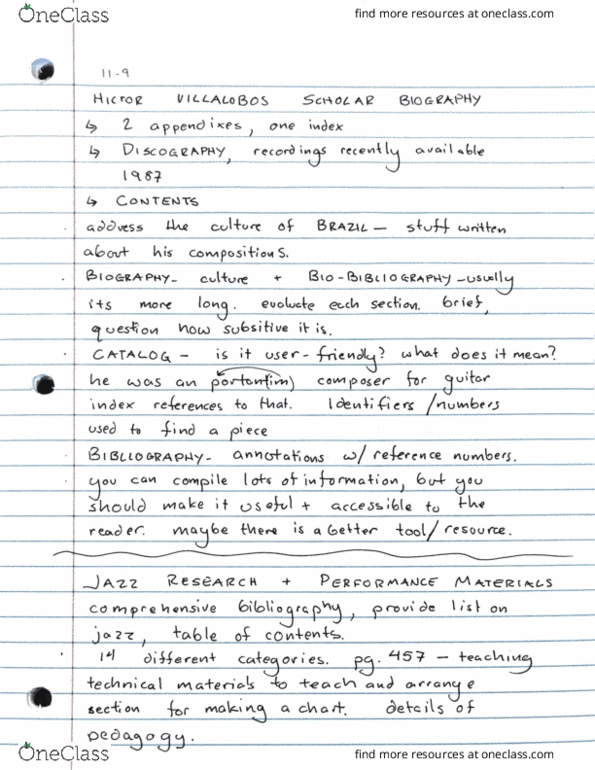 OneClass
find more resources at oneclass.com
11-9
HICTOR VILLALOBOS SCHOLAR BIOGRAPHY
↳ 2 appendixes, one index
↳ DISCOGRAPHY, recordings recently available
1987
↳ CONTENTS
address the culture of BRAZIL — stuff written
about his compositions.
BIOGRAPHY- culture + BIO-BIBLIOGRAPHY -usually
its more long. evoluate each section. brief,
question how subsitive it is.
CATALOG - is it user-friendly? what does it mean?
he was an portant(im) composer for guitar
index references to that. Identifiers/numbers
used to find a piece
BIBLIOGRAPHY- annotations w/ reference numbers.
you can compile lots of information, but you
should make it useful + accessible to the
reader. maybe there is a better tool/resource.
JAZZ RESEARCH + PERFORMANCE MATERIALS
comprehensive bibliography, provide list on
jazz, table of contents.
14 different categories. pg. 457 — teaching
technical materials to teach and arrange
section for making a chart. details of
pedagogy.
OneClass
find more resources at oneclass.com